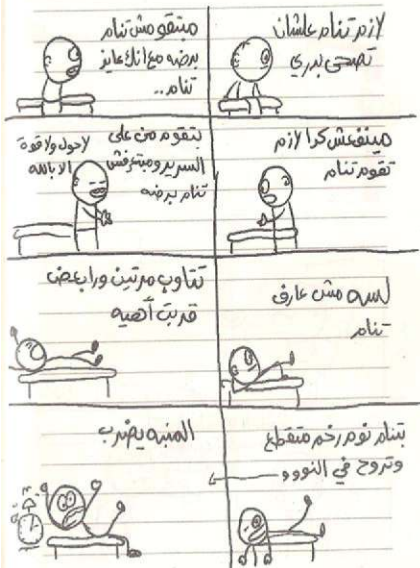 لازم تنام علشان
تصحى بدري
مبتقومش تنام
برضه مع انك عايز
تنام..
مينفعش كدا لازم
تقوم تنام
بتقوم من على
السرير ومبتعرفش
تنام برضه
لا حول ولا قوة
الا بالله
لسه مش عارف
تنام
تتاوب مرتين ورا بعض
قربت أهيه
بتنام نوم رخم متقطع
وتروح في النووو
المنبه يضرب